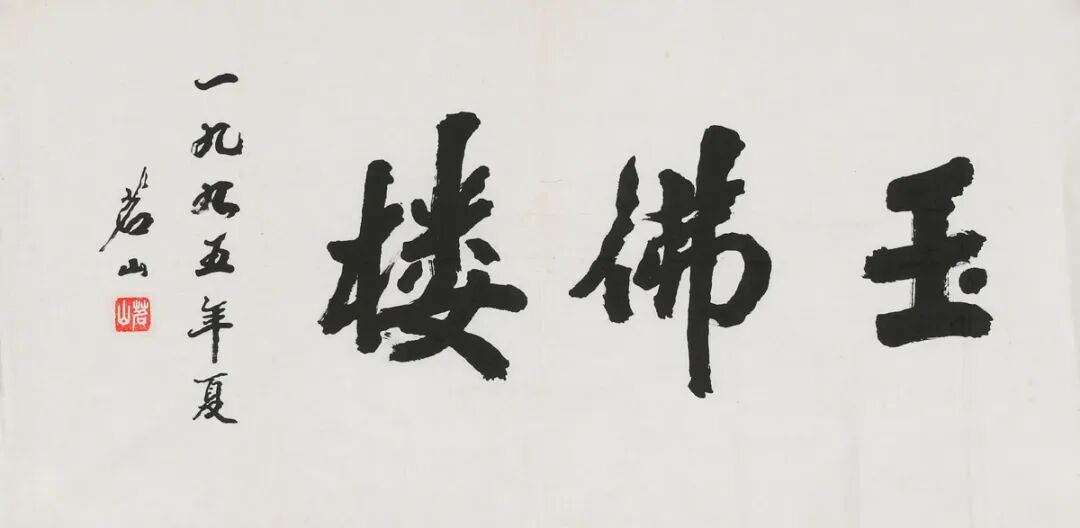 玉佛楼
一九九五年夏
茗山
茗山